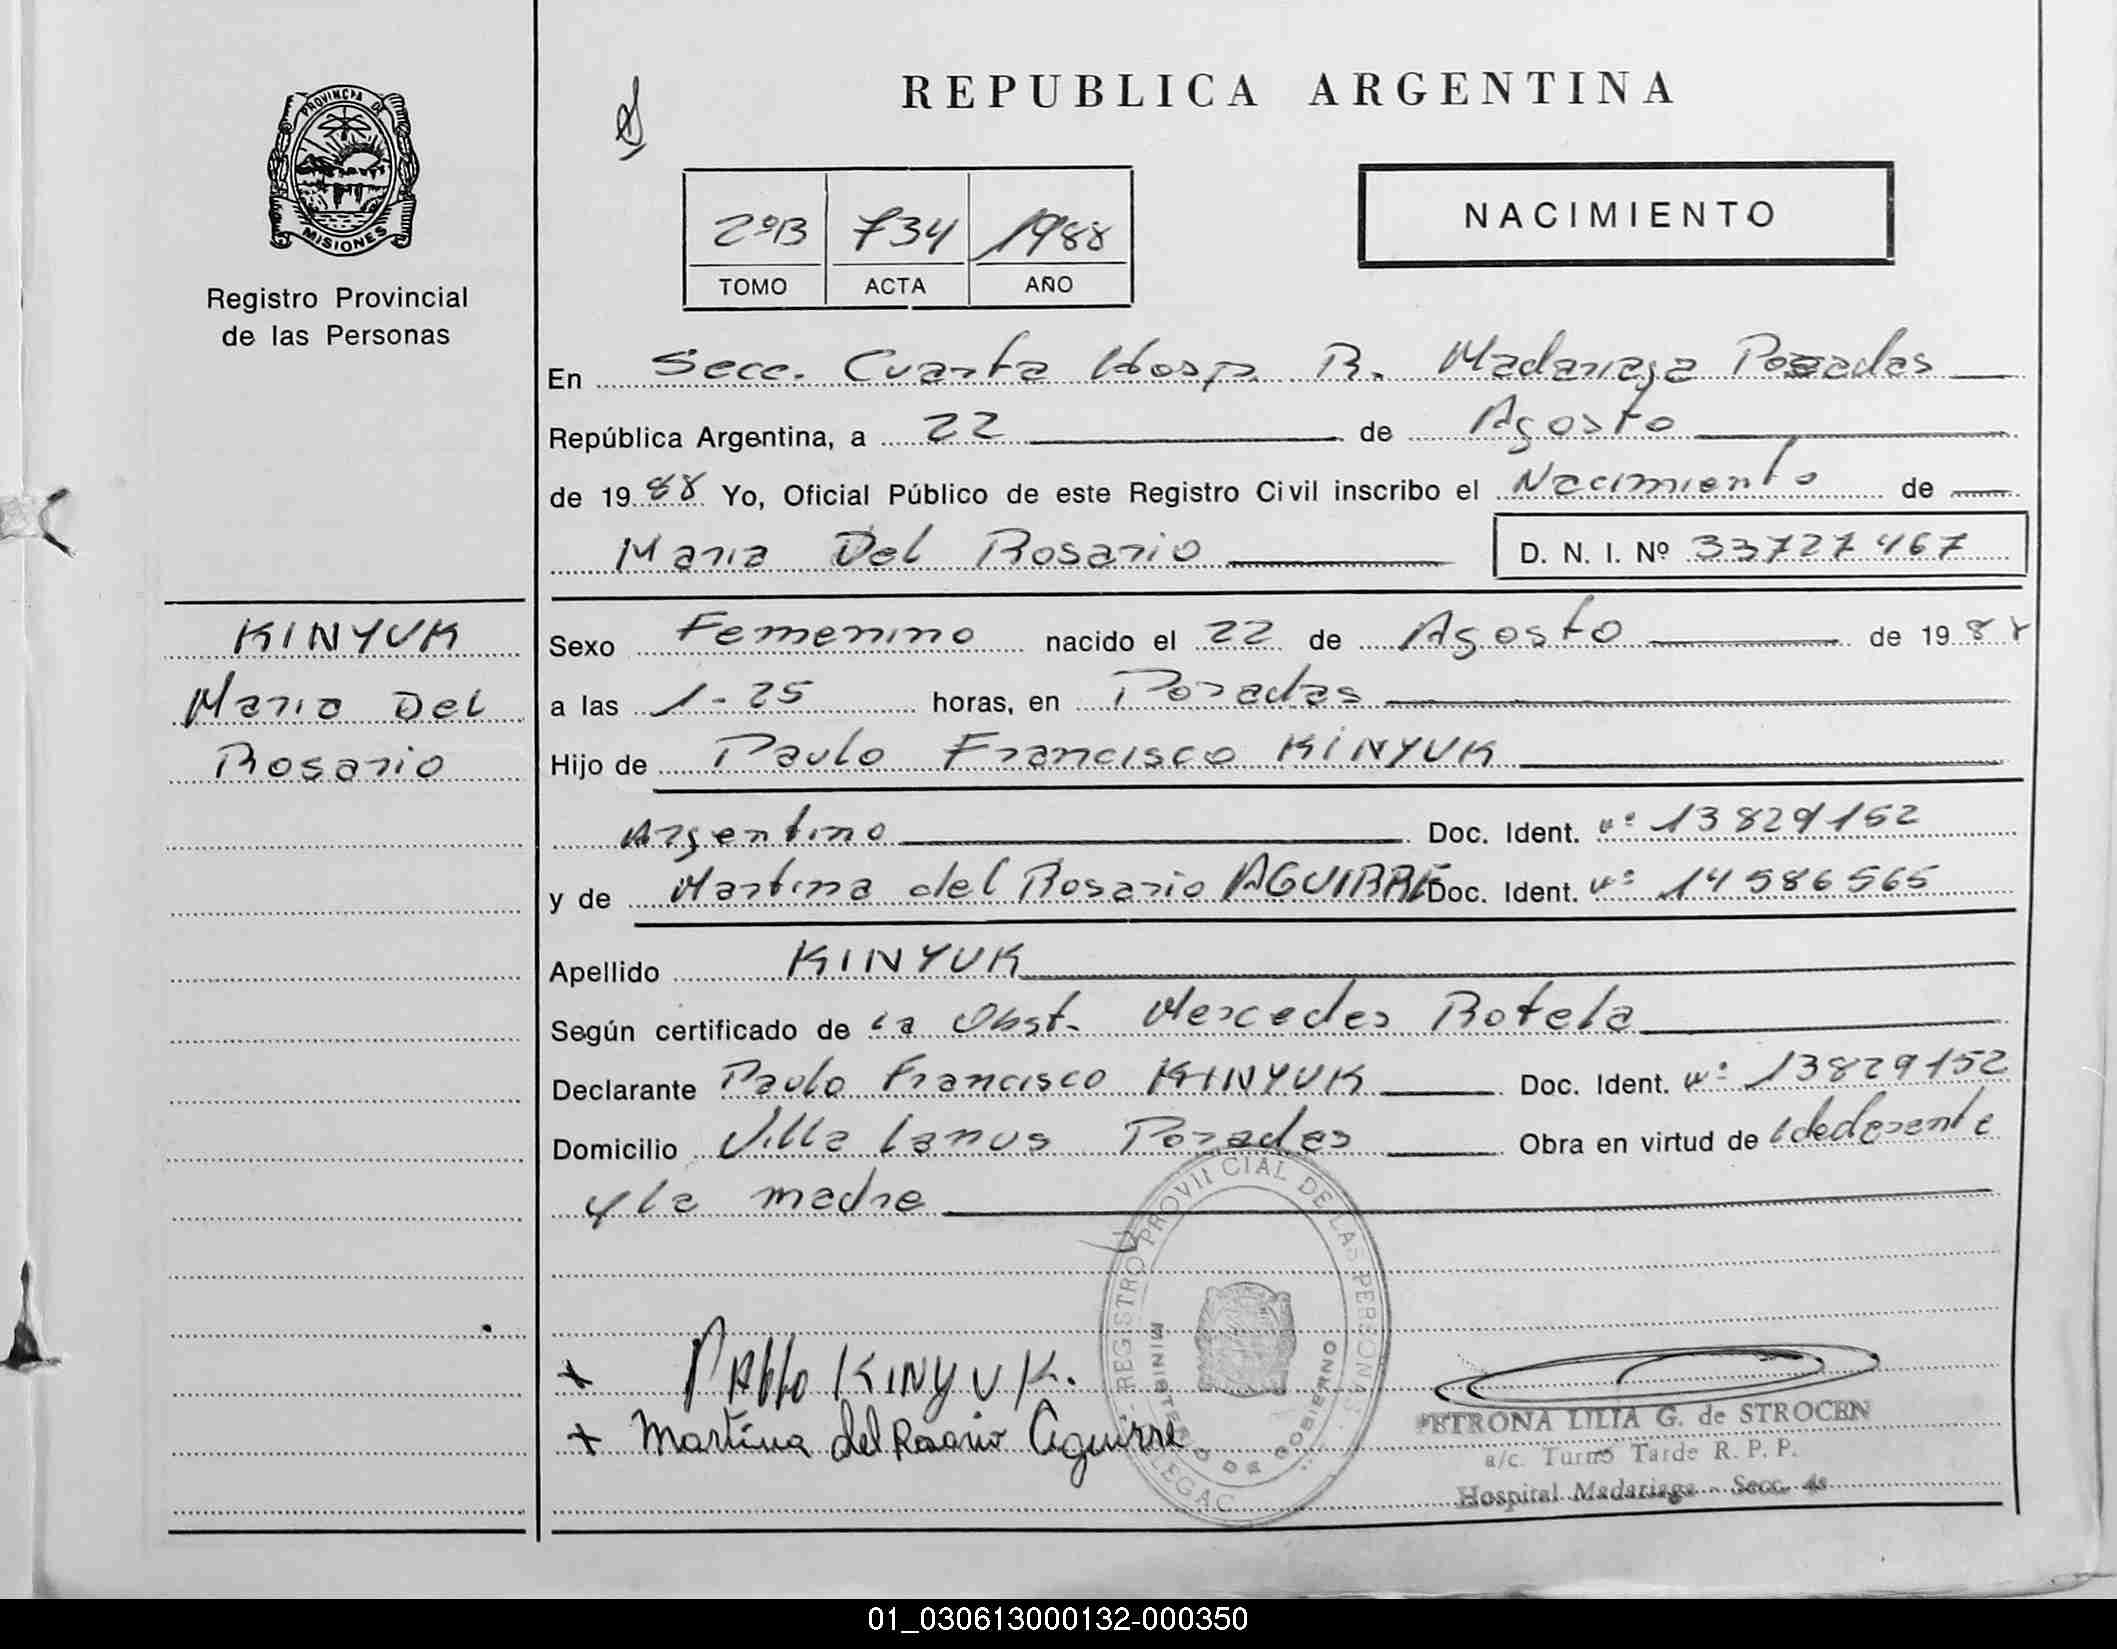 REPUBLICA ARGENTINA
PROVINCIA DE
MISIONES
Registro Provincial
de las Personas
2ºB 734 1988
TOMO ACTA AÑO
NACIMIENTO
En Secc. Cuarta Hosp. R. Madariaga Posadas
República Argentina, a 22 de Agosto
de 1988 Yo, Oficial Público de este Registro Civil inscribo el Nacimiento de
Maria Del Rosario D. N. I. Nº 33727467
KINYUK
Maria Del
Rosario
Sexo Femenino nacido el 22 de Agosto de 1988
a las 1-25 horas, en Posadas
Hijo de Paulo Francisco KINYUK
Argentino Doc. Ident. nº 13829152
y de Martina del Rosario AGUIRRE Doc. Ident. nº 14586565
Apellido KINYUK
Según certificado de la Obst. Mercedes Rotela
Declarante Paulo Francisco KINYUK Doc. Ident. nº 13829152
Domicilio Villa Lanus Posadas Obra en virtud de
y la madre
+ PAblo KINYUK.
+ Martina del Rosario Aguirre
REGISTRO PROVINCIAL DE LAS PERSONAS
MINISTERIO DE GOBIERNO
PETRONA LILIA G. de STROCEN
a/c. Turno Tarde R. P. P.
Hospital Madariaga - Secc. 4a
01_030613000132-000350